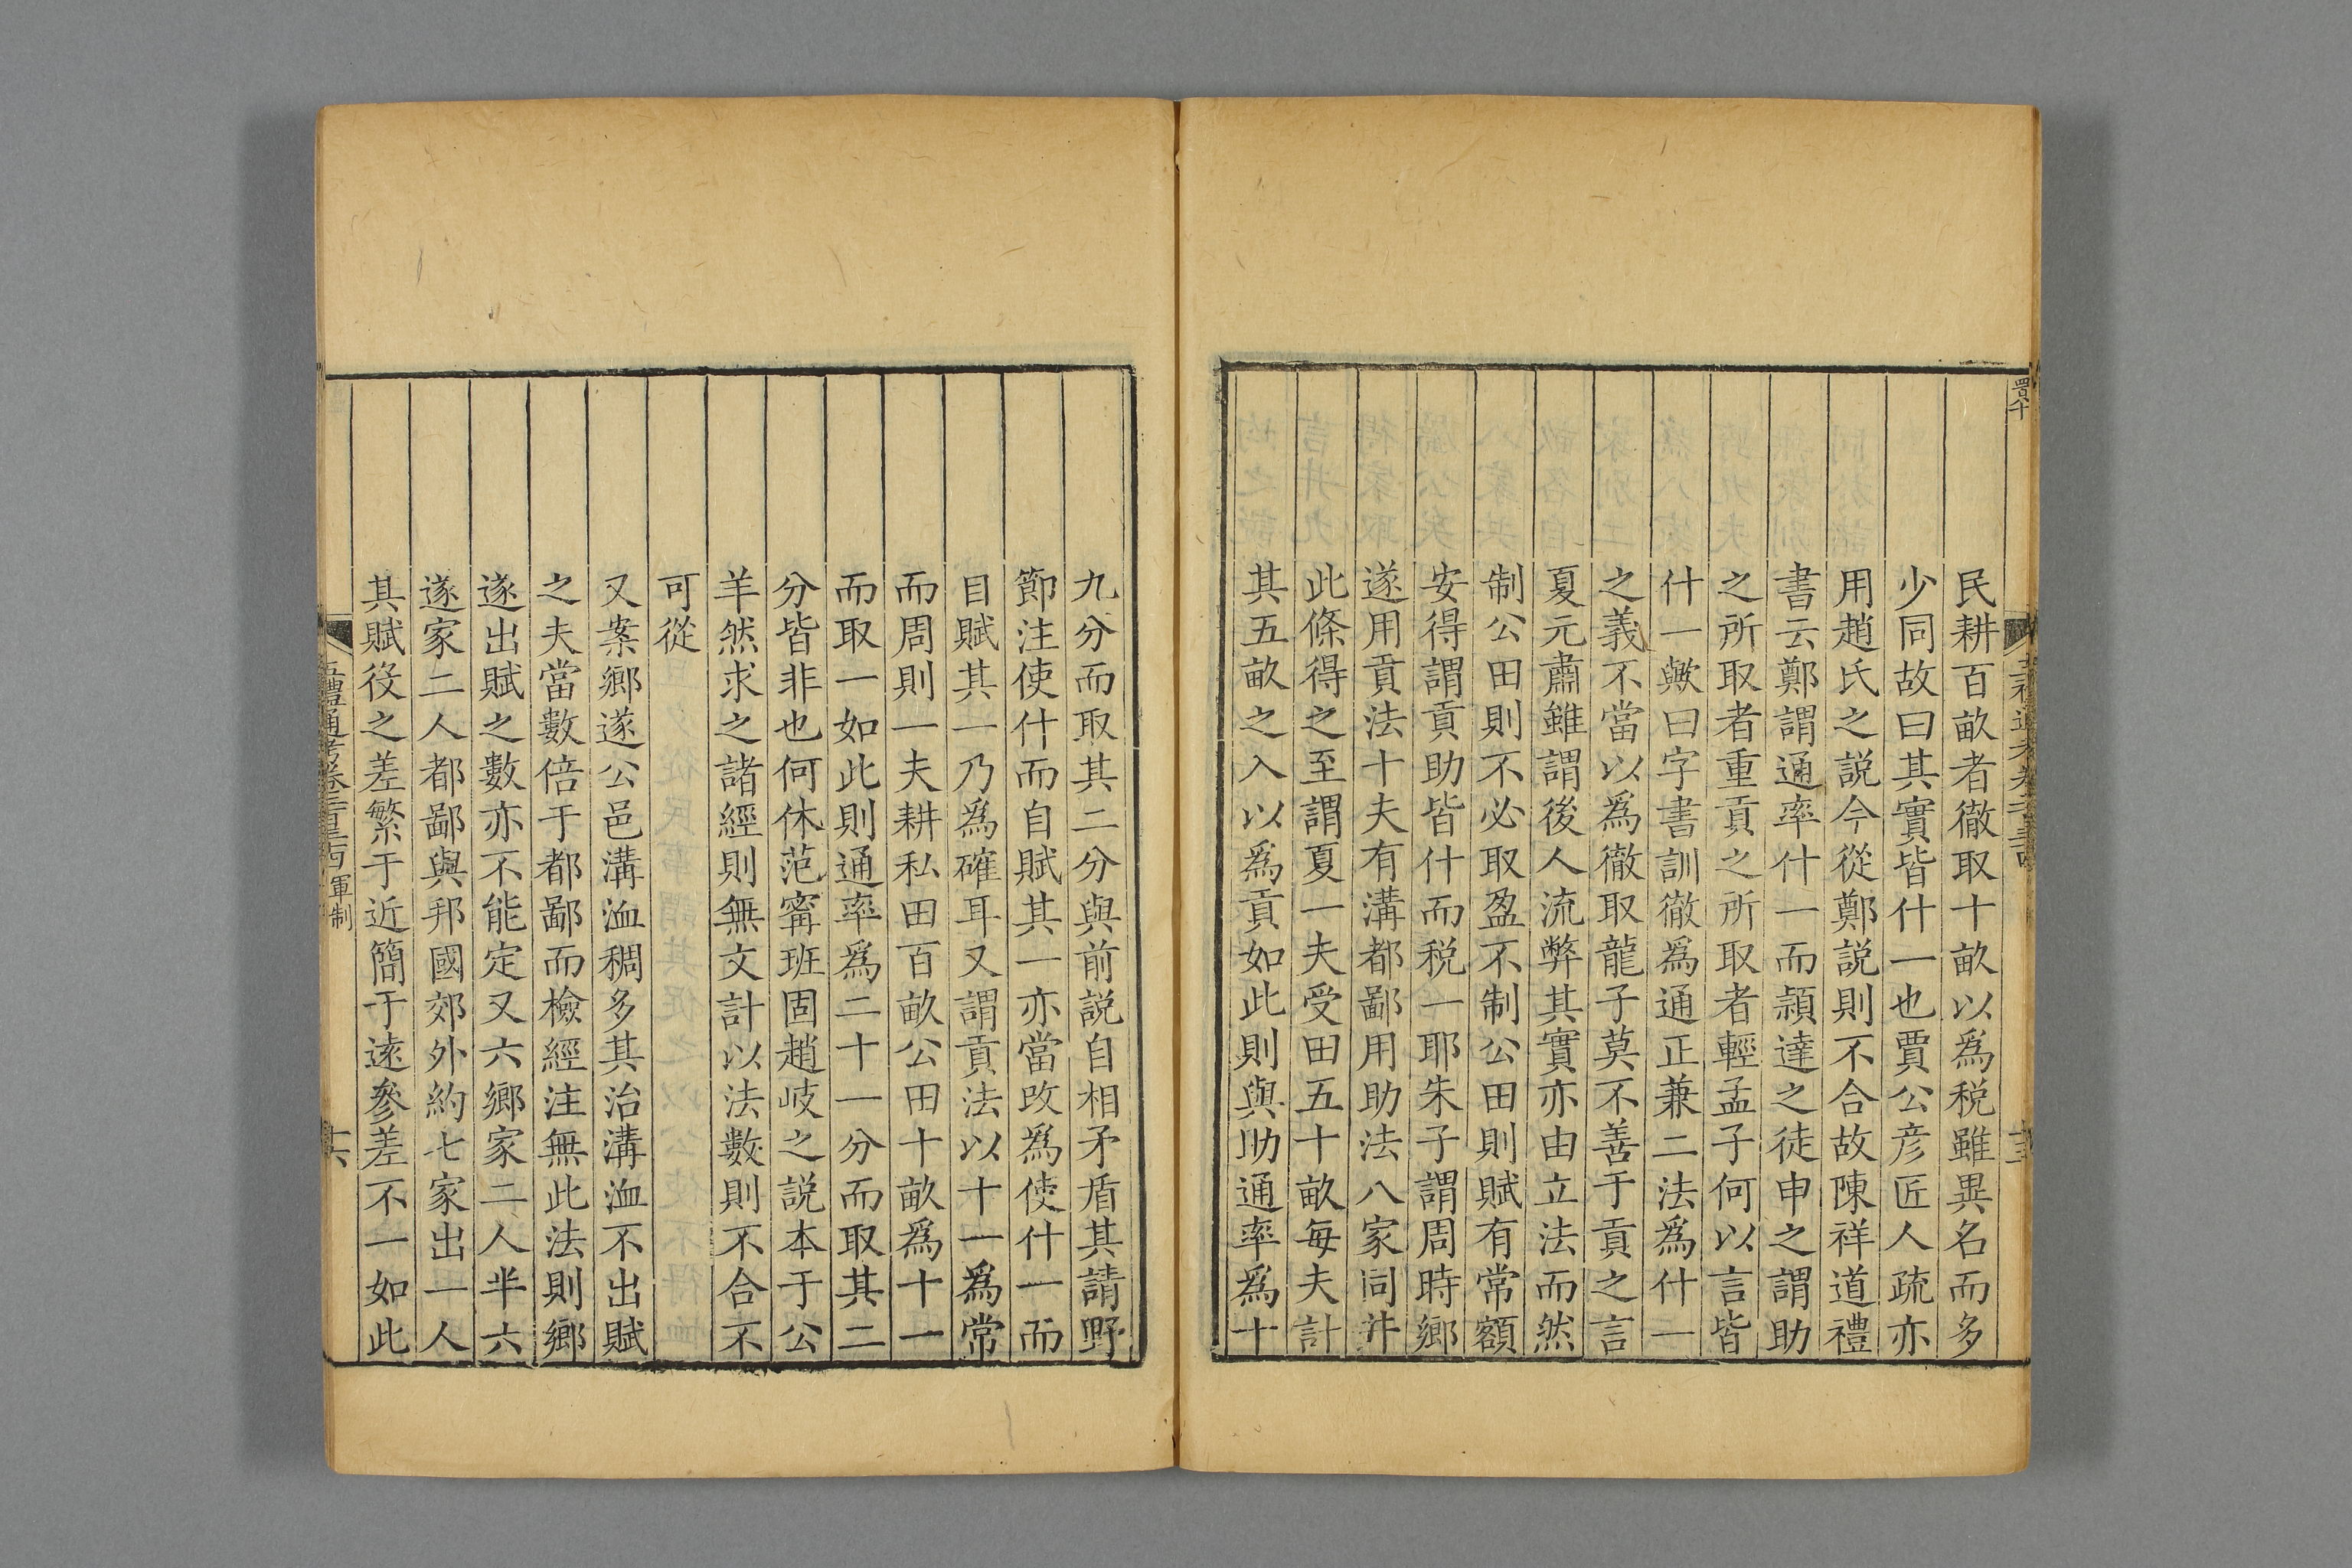 民耕百畝者徹取十畝以爲税雖異名而多
少同故曰其實皆什一也賈公彦匠人疏亦
用趙氏之説今從鄭説則不合故陳祥道禮
書云鄭謂通率什一而頴達之徒申之謂助
之所取者重貢之所取者輕孟子何以言皆
什一歟曰字書訓徹爲通正兼二法爲什一
之義不當以爲徹取龍子莫不善于貢之言
夏元肅雖謂後人流弊其實亦由立法而然
制公田則不必取盈不制公田則賦有常額
安得謂貢助皆什而税一耶朱子謂周時鄉
遂用貢法十夫有溝都鄙用助法八家同井
此條得之至謂夏一夫受田五十畝每夫計
其五畝之入以爲貢如此則與助通率爲十
九分而取其二分與前説自相矛盾其請野
節注使什而自賦其一亦當改爲使什一而
目賦其一乃爲確耳又謂貢法以十一爲常
而周則一夫耕私田百畝公田十畝爲十一
而取一如此則通率爲二十一分而取其二
分皆非也何休范甯班固趙岐之説本于公
羊然求之諸經則無文計以法數則不合不
可從
又案鄉遂公邑溝洫稠多其治溝洫不出賦
之夫當數倍于都鄙而檢經注無此法則鄉
遂出賦之數亦不能定又六鄉家二人半六
遂家二人都鄙與邦國郊外約七家出一人
其賦役之差繁于近簡于遠參差不一如此
軍制